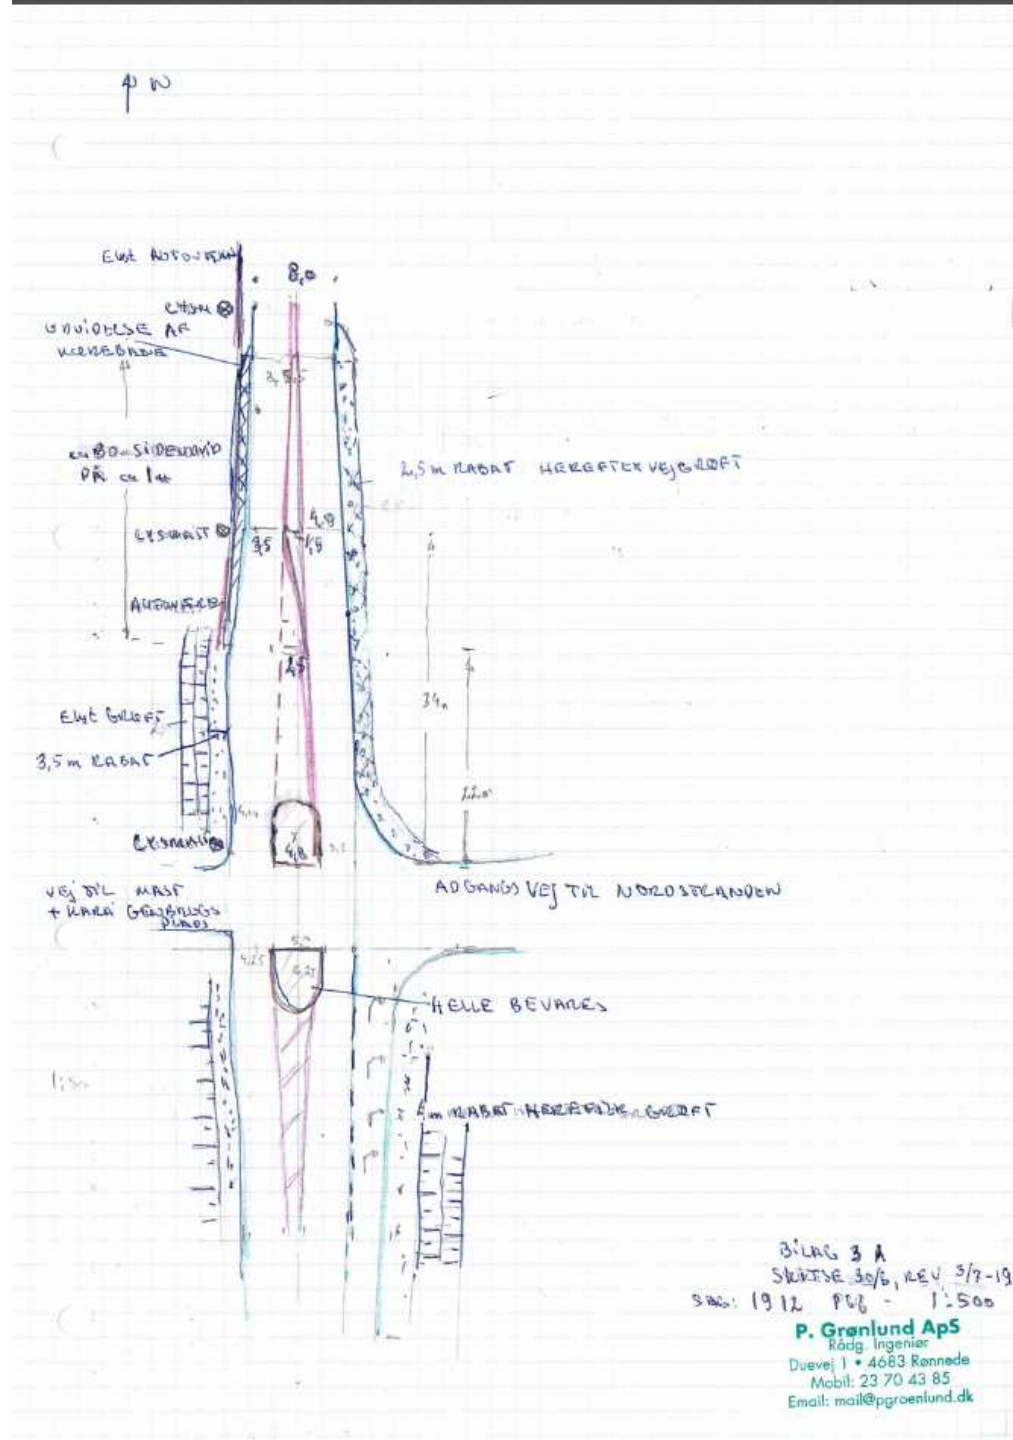 N
EKST AUTOVÆRN
8,0
UDVIDELSE AF
KØREBANE
PÅ ca 1 m
2,5 m RABAT HEREFTER VEJGRØFT
4,8
3,5
1,5
LYSMAST
AUTOVÆRN
1,5
34m
EKST GRØFT
3,5 m RABAT
22m
4,8
LYSMAST
VEJ TIL MAST
+ KARA GENBRUGS
PLADS
ADGANGSVEJ TIL NORDSTRANDEN
4,25
HELLE BEVARES
m RABAT HEREFTER GRØFT
BILAG 3 A
SKITSE 30/6, REV 3/7-19
SAG: 1912 PGG - 1:500
P. Grønlund ApS
Rådg. Ingeniør
Duevej 1 • 4683 Rønnede
Mobil: 23 70 43 85
Email: mail@pgroenlund.dk